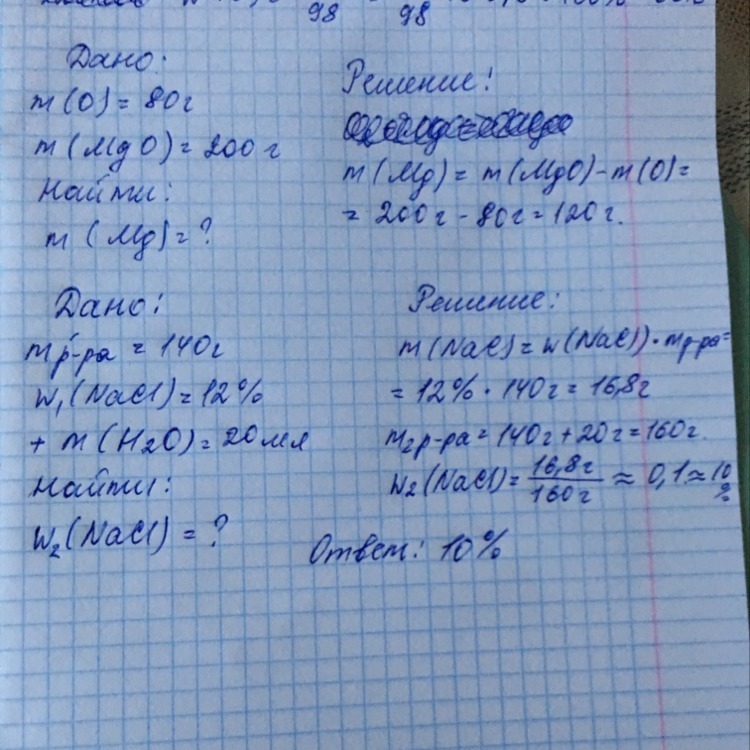 98 98
Дано:
m(O) = 80г
m(MgO) = 200г
Найти:
m(Mg) = ?
Решение!
m(Mg) = m(MgO) - m(O) =
= 200г - 80г = 120г.
Дано:
m р-ра = 140г
W₁(NaCl) = 12%
+ m(H2O) = 20мл
Найти:
W₂(NaCl) = ?
Решение:
m(NaCl) = W(NaCl)) · m р-ра =
= 12% · 140г = 16,8г
m₂ р-ра = 140г + 20г = 160г.
W₂(NaCl) = 16,8г / 160г ≈ 0,1 ≈ 10 %
Ответ: 10%